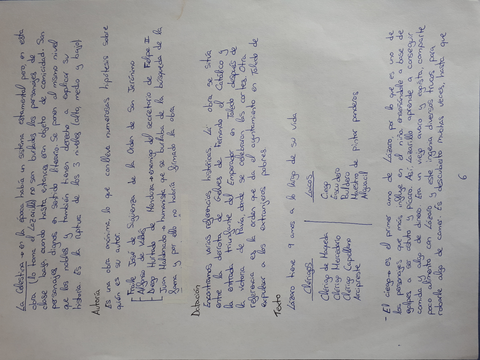 La Celestina → en la época había un sistema estamental pero en esta
obra (lo toma el Lazarillo) no son burlados los personajes de
clase baja cuando hasta entonces eran objeto de comicidad. Son
personajes dignos. Sentido literario. Se pone al mismo nivel
que los nobles y también tienen derecho a explicar su
historia. Es la ruptura de los 3 niveles (alto, medio y bajo)
Autoría
Es una obra anónima lo que conlleva numerosas hipótesis sobre
quién es su autor.
Fraile José de Sigüenza de la Orden de San Jerónimo
Alfonso de Valdés
Diego Hurtado de Mendoza → enemigo del secretario de Felipe II
Juan Maldonado → humanista que se burlaba de la búsqueda de la
fama y por ello no habría firmado la obra
Datación
Encontramos varias referencias históricas. La obra se sitúa
entre la derrota de Gelves de Fernando el Católico y
la entrada triunfante del Emperador en Toledo después de
la victoria de Pavía, donde se celebraron las cortes. Otra
referencia es la orden que da el ayuntamiento en Toledo de
expulsar a los extranjeros pobres.
Texto
Lázaro tiene 9 amos a lo largo de su vida
Clérigos
Clérigo de Maqueda
Clérigo Mercedario
Clérigo Capellano
Arcipreste
Laicos
Ciego
Escudero
Buldero
Maestro de pintar panderos
Alguacil
- El ciego → es el primer amo de Lázaro por lo que es uno de
los personajes que más influye en el niño enseñándole a base de
golpes a ser astuto y pícaro. Así Lazarillo aprende a conseguir
comida y algo de dinero. Era un viejo avaro y egoísta compartía
poco alimento con Lázaro y este ingenia diversos trucos para
robarle algo de comer. Es descubierto muchas veces, hasta que
6